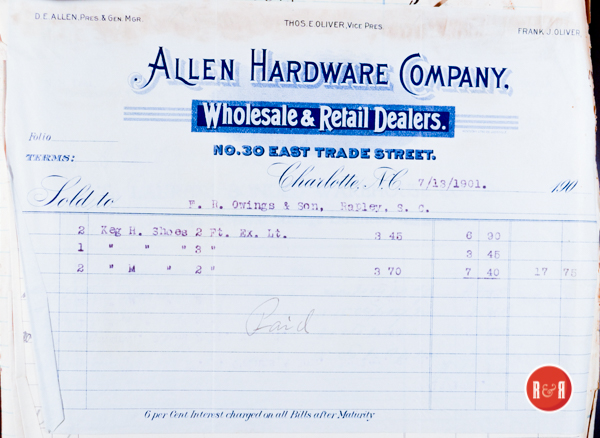 D.E. ALLEN, PRES. & GEN. MGR.
THOS. E. OLIVER, VICE PRES.
FRANK J. OLIVER
ALLEN HARDWARE COMPANY.
Wholesale & Retail Dealers.
NO. 30 EAST TRADE STREET.
Folio
TERMS:
Charlotte, N.C. 7/13/1901. 190
Sold to F. R. Owings & Son, Rapley, S. C.
2 Keg H. Shoes 2 Ft. Ex. Lt. 3 45 6 90
1 " " " 3 " 3 45
2 " M " 2 " 3 70 7 40 17 75
Paid
6 per Cent Interest charged on all Bills after Maturity
R&R